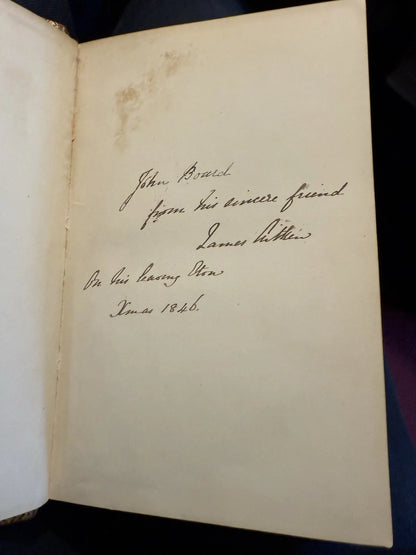 John Board
from his sincere friend
James Aitkin
On his leaving Eton
Xmas 1846.